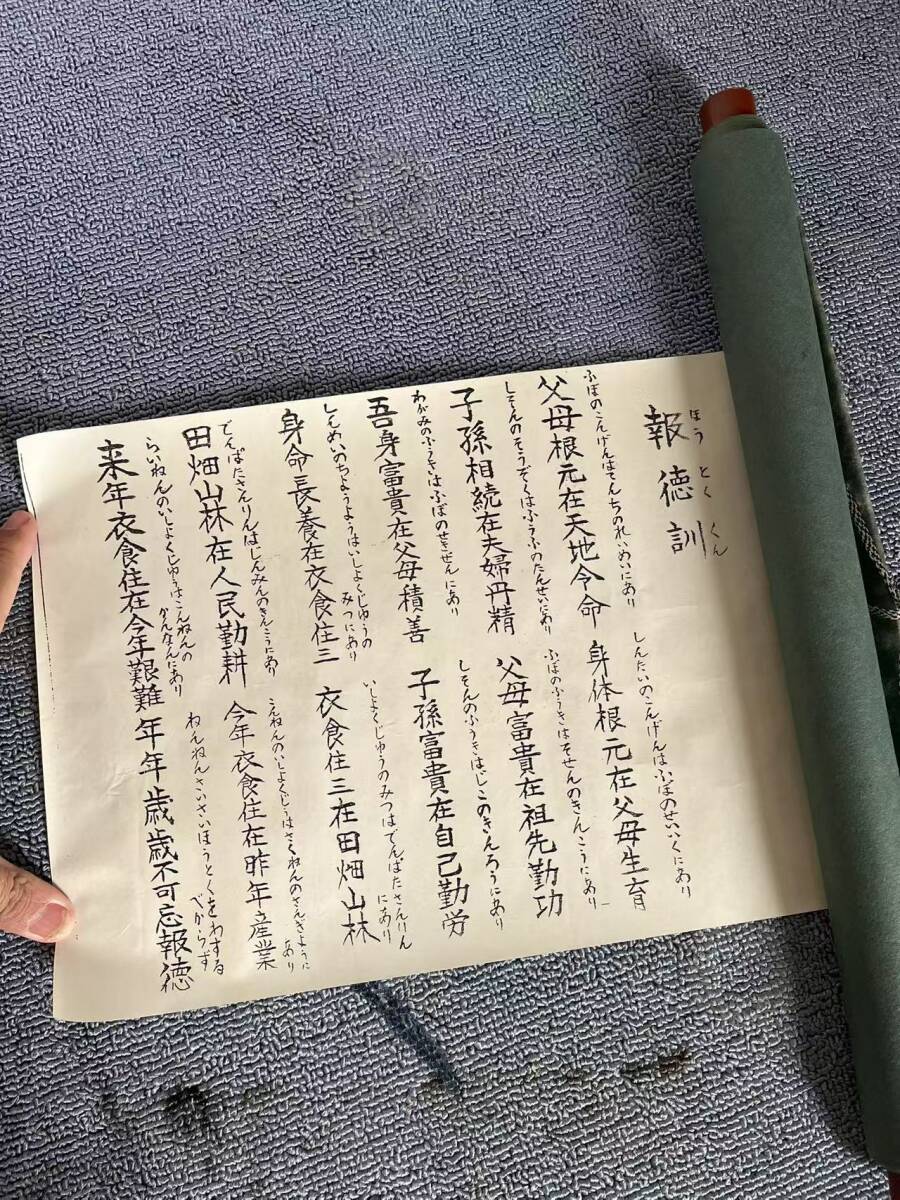 ほうとくくん
報徳訓
ふぼのこんげんはてんちのれいめいにあり
父母根元在天地令命
しんたいのこんげんはふぼのせいいくにあり
身体根元在父母生育
しそんのそうぞくはふうふのたんせいにあり
子孫相続在夫婦丹精
ふぼのふうきはそせんのきんこうにあり
父母富貴在祖先勤功
わがみのふうきはふぼのせきぜんにあり
吾身富貴在父母積善
しそんのふうきはじこのきんろうにあり
子孫富貴在自己勤労
しんめいのちようようはいしよくじゅうの
みつにあり
身命長養在衣食住三
いしよくじゅうのみつはでんばたさんりん
にあり
衣食住三在田畑山林
でんばたさんりんはじんみんのきんこうにあり
田畑山林在人民勤耕
こんねんのいしよくじゅうはさくねんのさんぎように
あり
今年衣食住在昨年産業
らいねんのいしよくじゅうはこんねんの
かんなんにあり
来年衣食住在今年艱難
ねんねんさいさいほうとくをわする
べからず
年年歳歳不可忘報徳